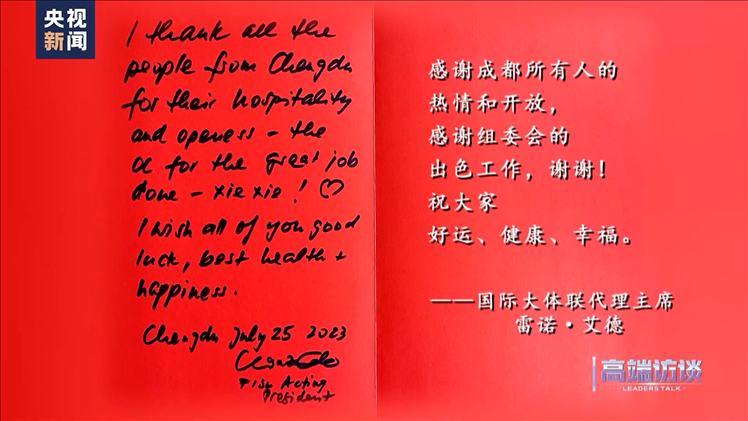 央视
新闻
I thank all the
people from Chengdu
for their hospitality
and openess – the
OC for the great job
done – xie xie! ♡
I wish all of you good
luck, best health +
happiness.
Chengdu July 25 2023
FISU Acting
President
感谢成都所有人的
热情和开放，
感谢组委会的
出色工作，谢谢！
祝大家
好运、健康、幸福。
——国际大体联代理主席
雷诺·艾德
高端访谈
LEADERS TALK